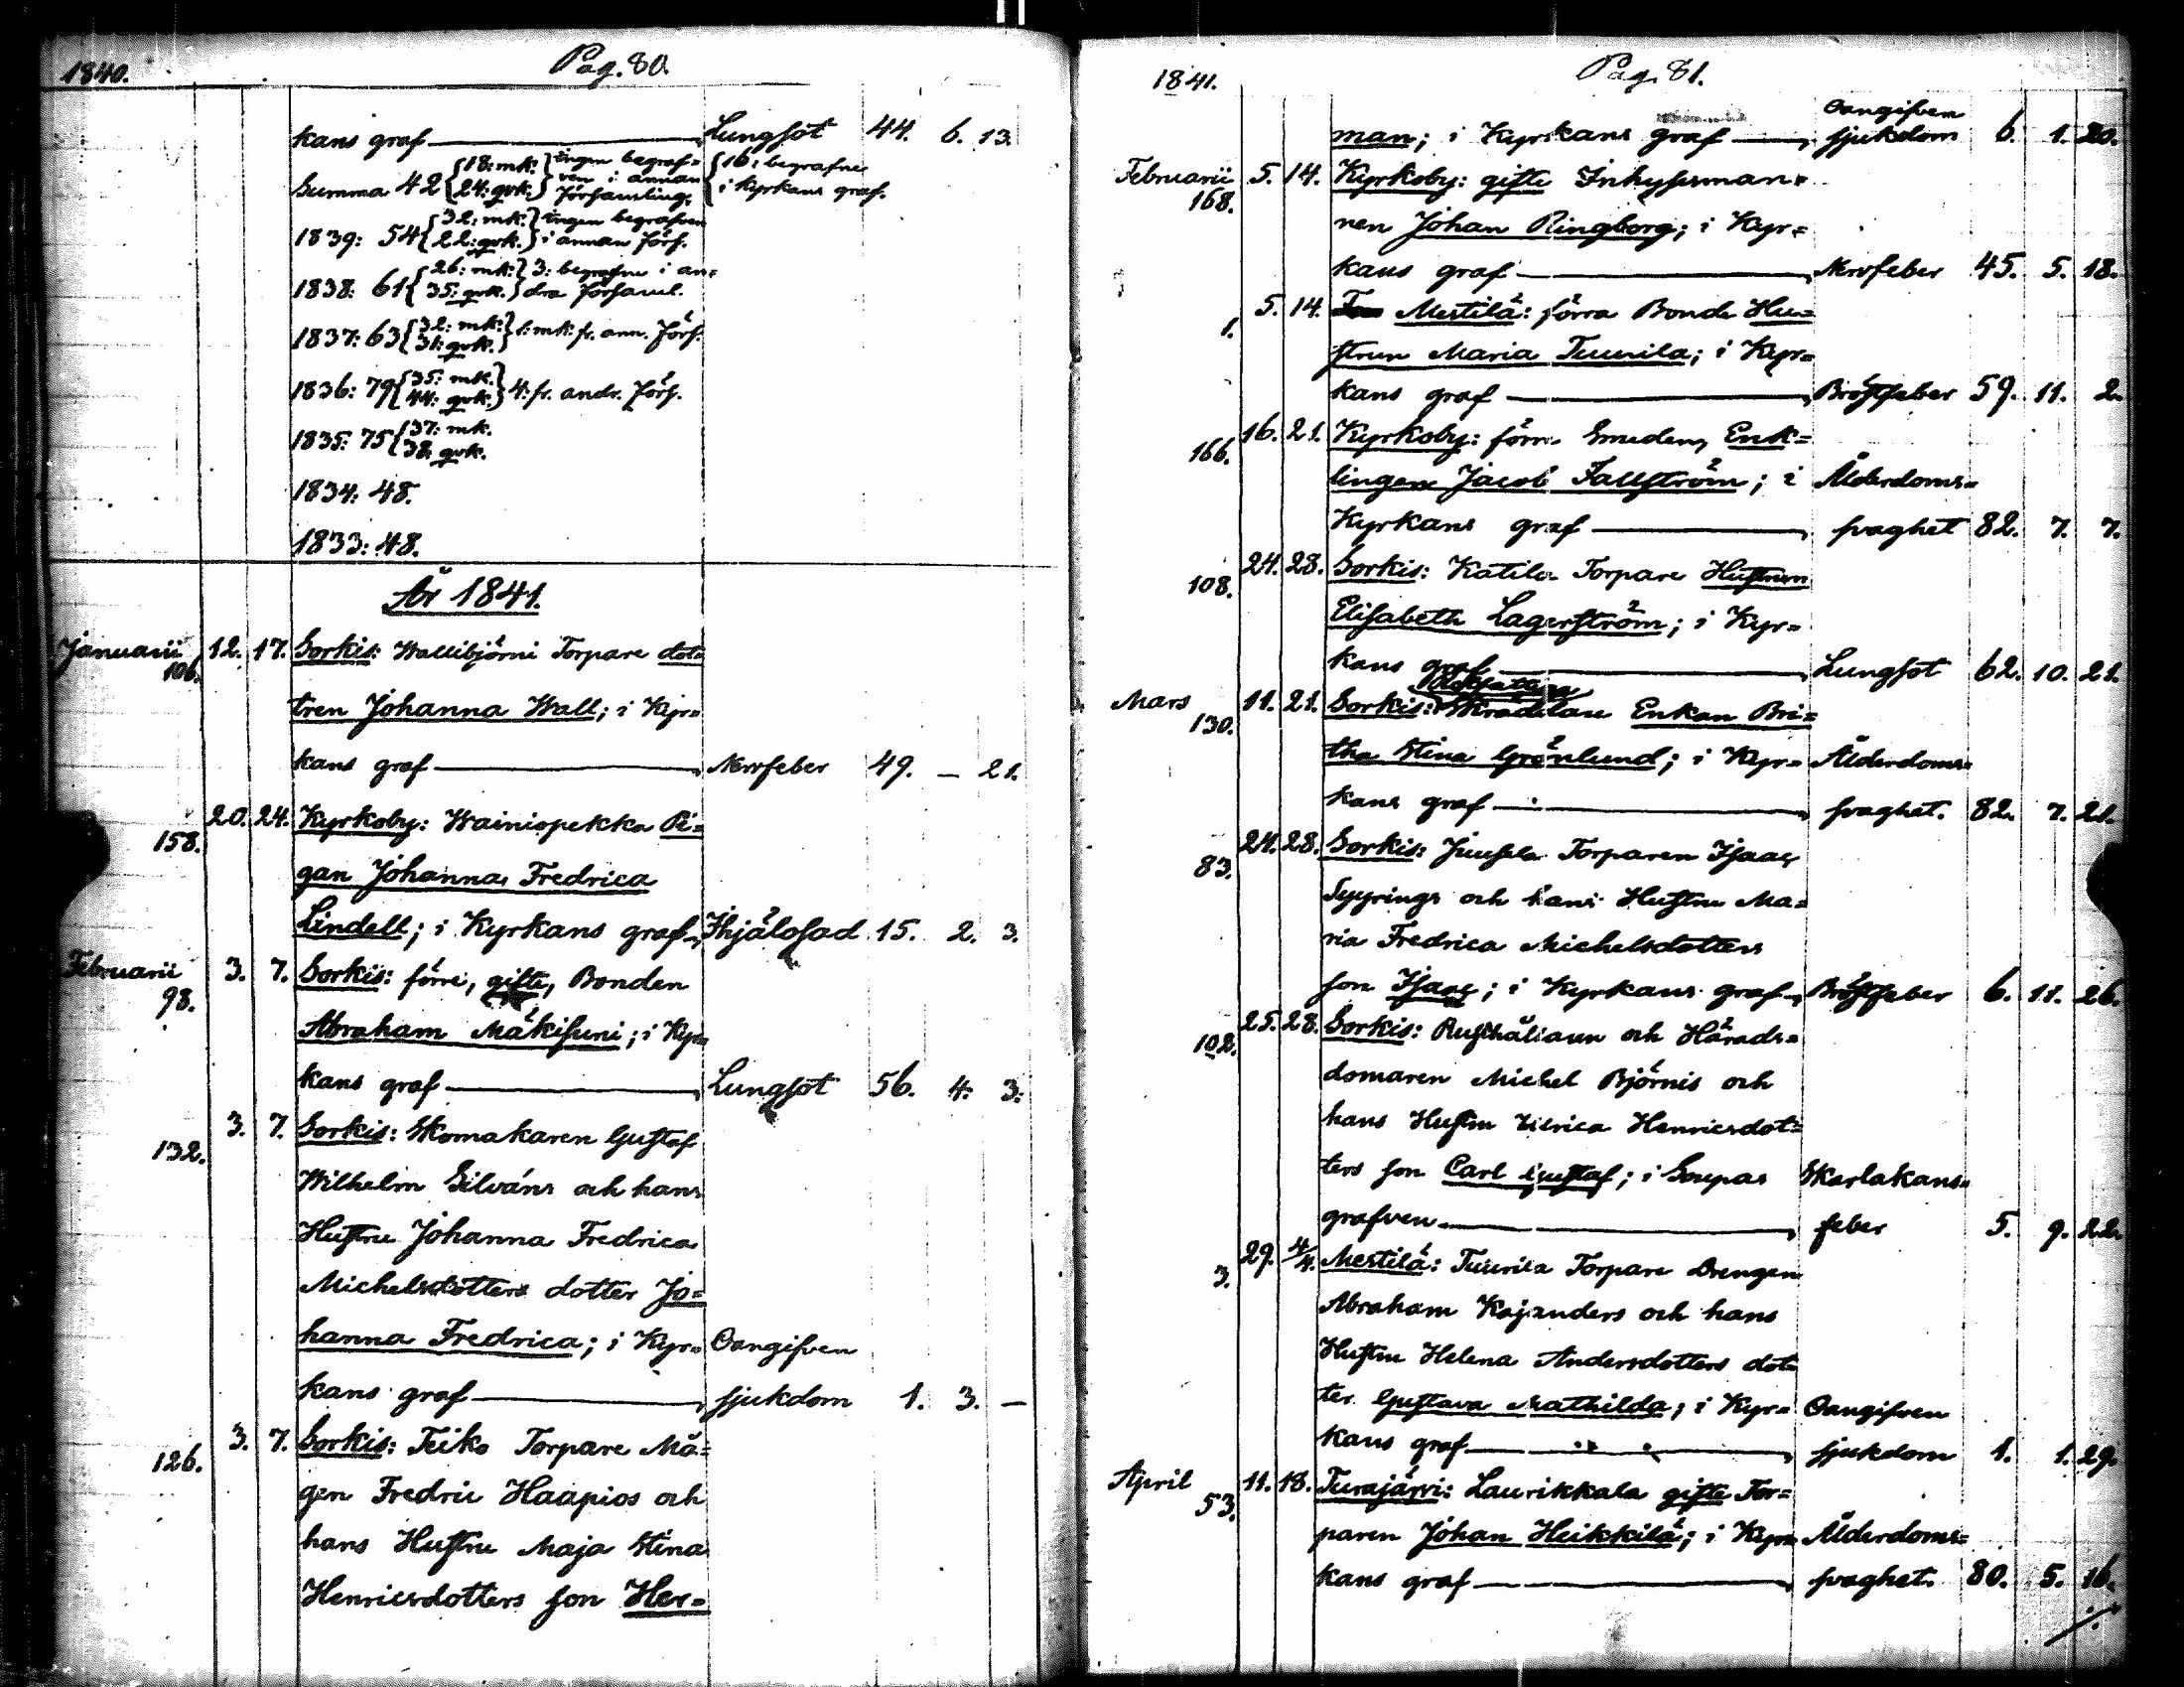 1840.
Pag. 80.
kans graf — Lungsot 44. 6. 13.
Summa 42 {18: mk. 24: qvk.} ingen begrafven i annan Församling. {16: begrafne i Kyrkans graf.
1839: 54 {32: mk. 22: qvk.} ingen begrafven i annan Förs.
1838: 61 {26: mk. 35: qvk.} 3: begrafne i andra Församl.
1837: 63 {32: mk. 31: qvk.} 1: mk. fr. ann. Förs.
1836: 79 {35: mk. 44: qvk.} 4: fr. andr. Förs.
1835: 75 {37: mk. 38: qvk.
1834: 48.
1833: 48.
År 1841.
Januarii 106. 12. 17. Sorkis: Wallibjörni Torpare dot=
tren Johanna Wall; i Kyr=
kans graf — Nervfeber 49. — 21.
158. 20. 24. Kyrkoby: Wainiopekka Pi=
gan Johanna Fredrica
Lindell; i Kyrkans graf — Ihjälosad 15. 2. 3.
Februarii 98. 3. 7. Sorkis: förre, gifte, Bonden
Abraham Mäkisuni; i Kyr=
kans graf — Lungsot 56. 4. 3.
132. 3. 7. Sorkis: Skomakaren Gustaf
Wilhelm Silváns och hans
Hustru Johanna Fredrica
Michelsdotters dotter Jo=
hanna Fredrica; i Kyr= Oangifven
kans graf — sjukdom 1. 3. —
126. 3. 7. Sorkis: Teiko Torpare Må=
gen Fredric Haapios och
hans Hustru Maja Stina
Henricsdotters son Her=
1841.
Pag. 81.
Oangifven
man; i Kyrkans graf — sjukdom 6. 1. 20.
Februarii 168. 5. 14. Kyrkoby: gifte Inhysesman=
nen Johan Ringborg; i Kyr=
kans graf — Nervfeber 45. 5. 18.
1. 5. 14. Mestilä: förra Bonde Hu=
strun Maria Tuurila; i Kyr=
kans graf — Bröstfeber 59. 11. 2.
166. 16. 21. Kyrkoby: förre Smeden, Enk=
lingen Jacob Fallström; i Ålderdoms=
Kyrkans graf — svaghet 82. 7. 7.
108. 24. 28. Sorkis: Katila Torpare Hustrun
Elisabeth Lagerström; i Kyr=
kans graf — Lungsot 62. 10. 21.
Mars 130. 11. 21. Sorkis: Enkan Bri=
tha Stina Grönlund; i Kyr= Ålderdoms=
kans graf — svaghet. 82. 7. 21.
83. 24. 28. Sorkis: Juusela Torparen Isaac
Syyrings och hans Hustru Ma=
ria Fredrica Michelsdotters
son Isaac; i Kyrkans graf — Bröstfeber 6. 11. 26.
102. 25. 28. Sorkis: Rusthållaren och Härads=
domaren Michel Björnis och
hans Hustru Ulrica Henricsdot=
ters son Carl Gustaf; i Soupas Skarlakans=
grafven — feber 5. 9. 22.
3. 29. 4/4. Mestilä: Tuurila Torpare Drengen
Abraham Kajanders och hans
Hustru Helena Andersdotters dot=
ter Gustava Mathilda; i Kyr= Oangifven
kans graf — sjukdom 1. 1. 29.
April 53. 11. 18. Turajärvi: Laurikkala gifte Tor=
paren Johan Heikkilä; i Kyr= Ålderdoms=
kans graf — svaghet. 80. 5. 16.